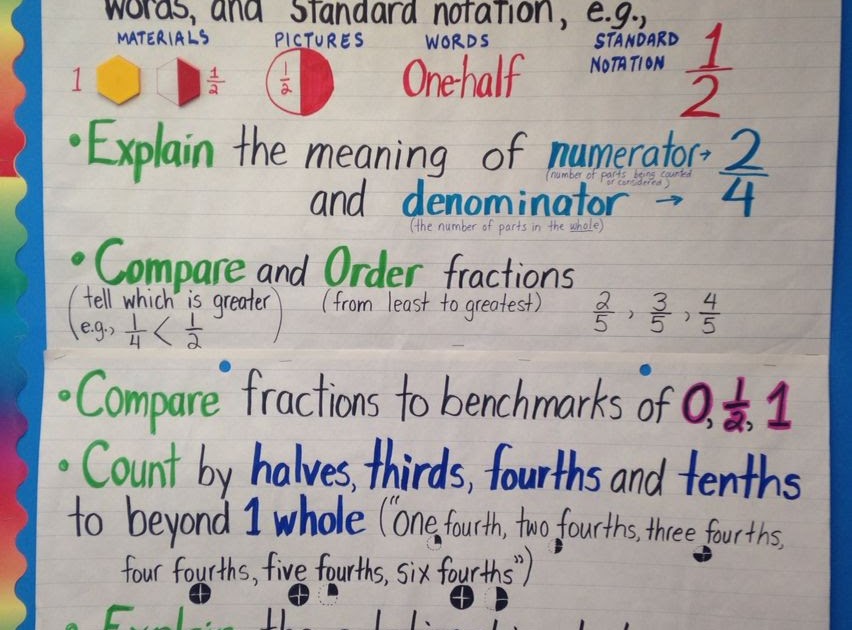 words, and standard notation, e.g.,
MATERIALS PICTURES WORDS STANDARD NOTATION
1 1/2 1/2 One-half 1/2
•Explain the meaning of numerator→ 2/4
(number of parts being counted or considered)
and denominator →
(the number of parts in the whole)
•Compare and Order fractions
(tell which is greater) (from least to greatest) 2/5, 3/5, 4/5
(e.g., 1/4 < 1/2)
•Compare fractions to benchmarks of 0, 1/2, 1
•Count by halves, thirds, fourths and tenths
to beyond 1 whole ("one fourth, two fourths, three fourths,
four fourths, five fourths, six fourths")